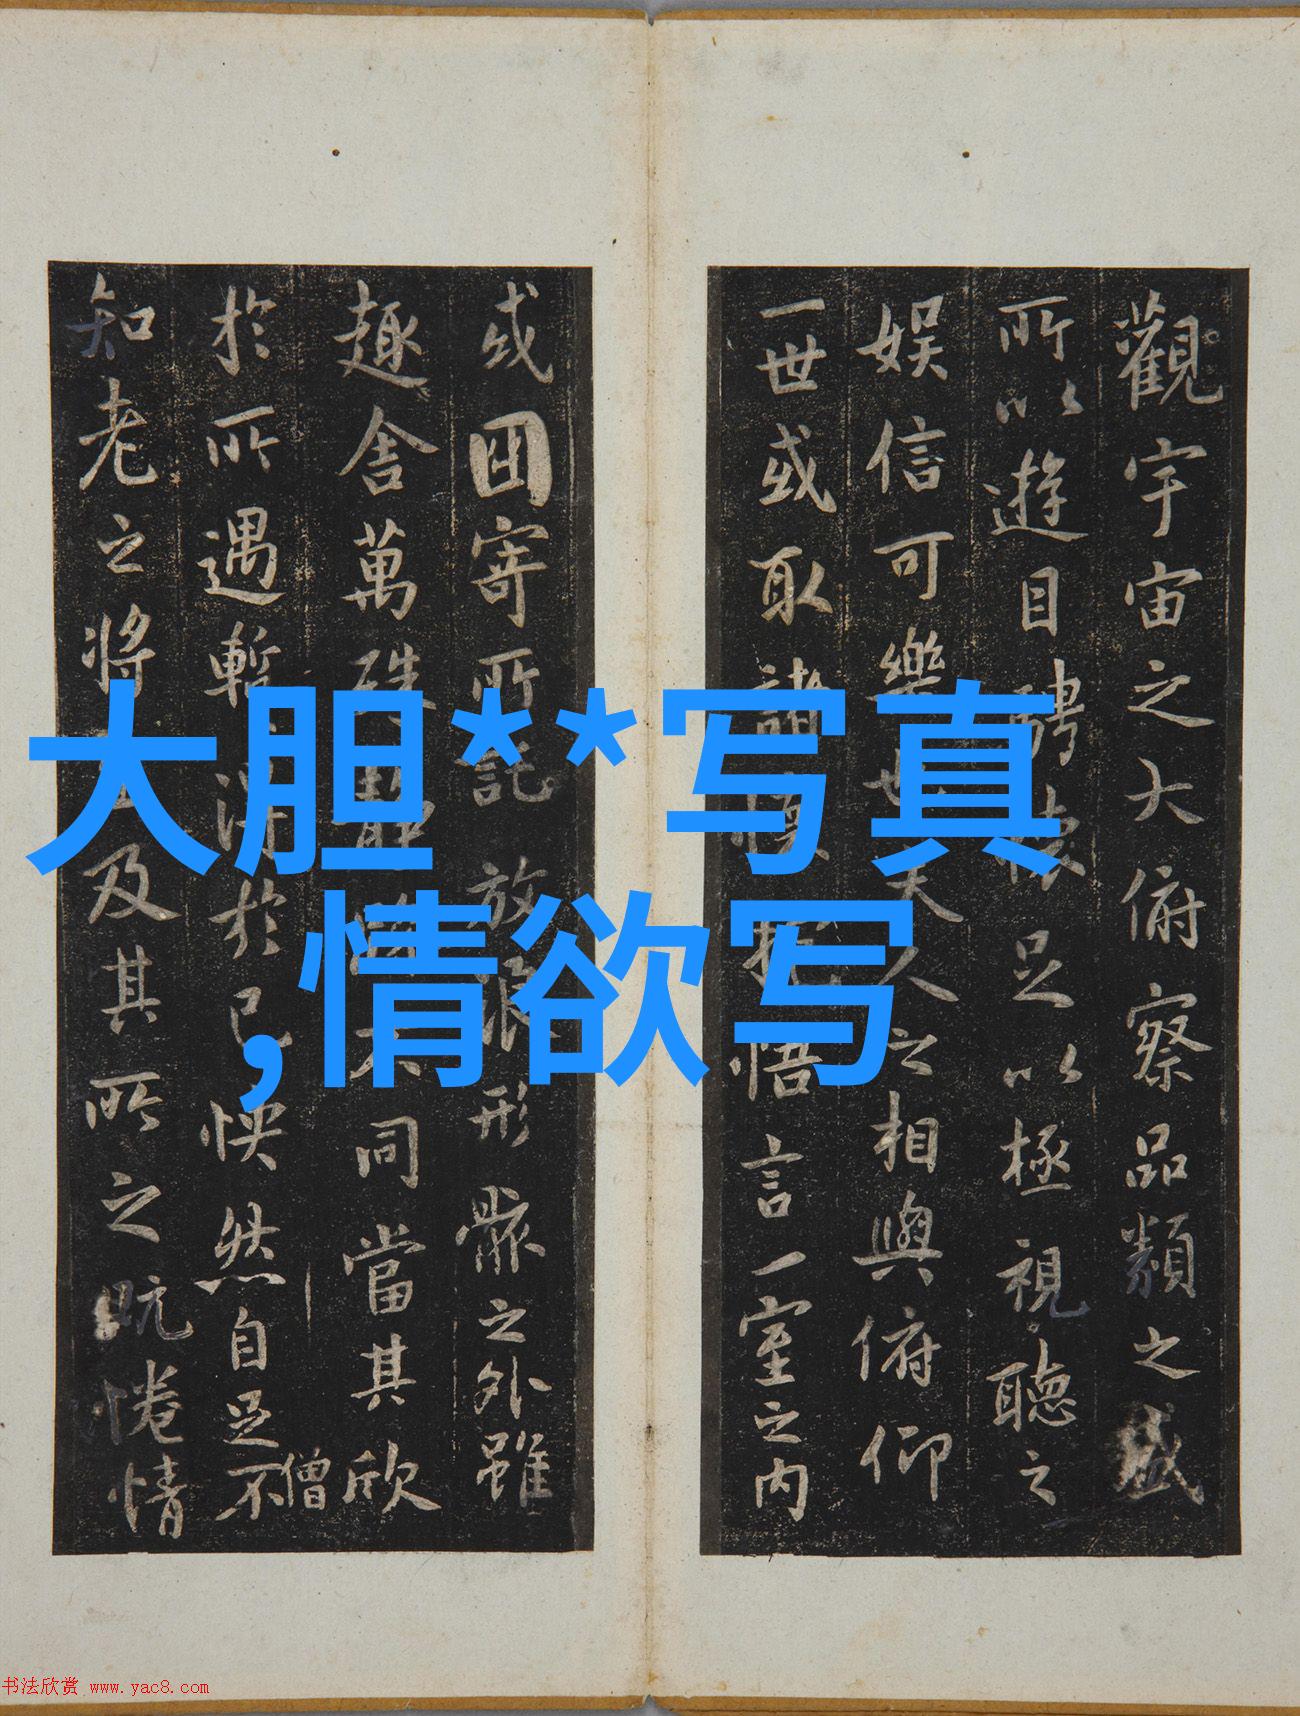 觀宇宙之大俯察品類之盛
所以遊目騁懷足以極視聽之
娱信可樂也夫人之相與俯仰
一世或取諸懷抱悟言一室之内
或因寄所託放浪形骸之外雖
趣舍萬殊静躁不同當其欣
於所遇暫得於己怏然自足不
僧
知老之將至及其所之既惓情
大胆**写真
,情欲写
书法欣赏 www.yac8.com